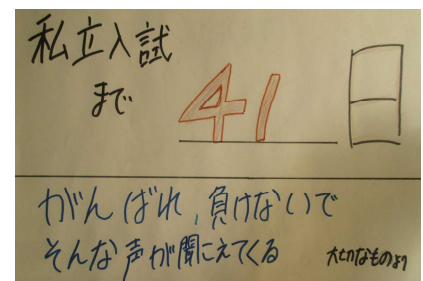 私立入試
まで
41日
がんばれ、負けないで
そんな声が聞こえてくる
大切なものより